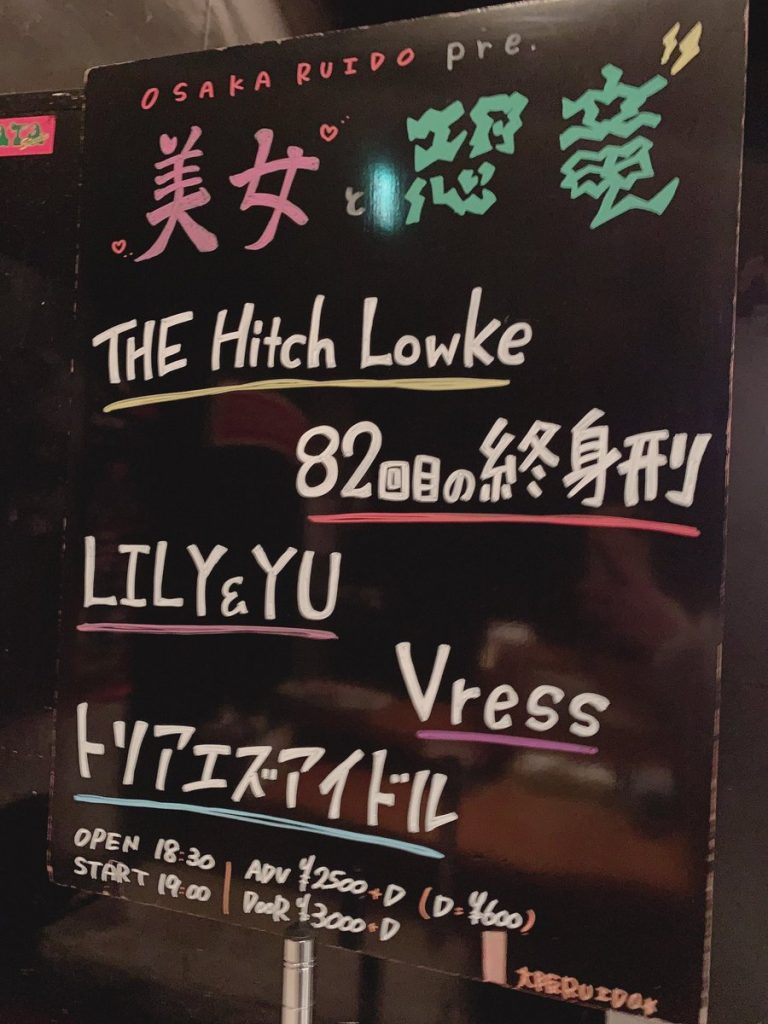 OSAKA RUIDO pre.
美女と恐竜
THE Hitch Lowke
82回目の終身刑
LILY&YU
Vress
トリアエズアイドル
OPEN 18:30
START 19:00
ADV ¥2500+D (D=¥600)
DooR ¥3000+D
大阪RUIDO